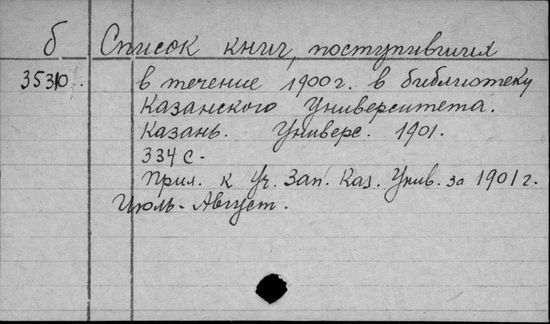 б Список книг, поступивших
35310. в течение 1900 г. в библиотеку
Казанского Университета.
Казань. Универс. 1901.
334 с.
Прил. к Уч. Зап. Каз. Унив. за 1901 г.
Июль-Август.